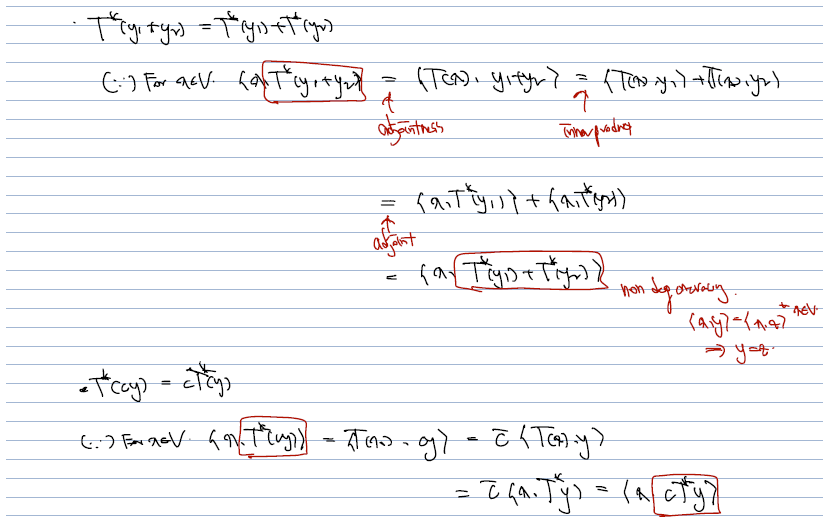 · T*(y₁+y₂) = T*(y₁)+T*(y₂)
(∵) For x∈V. ⟨x, T*(y₁+y₂)⟩ = ⟨T(x), y₁+y₂⟩ = ⟨T(x), y₁⟩+⟨T(x), y₂⟩
adjointness inner product
= ⟨x, T*(y₁)⟩ + ⟨x, T*(y₂)⟩
adjoint
= ⟨x, T*(y₁) + T*(y₂)⟩
non degeneracy.
⟨x,y⟩=⟨x,z⟩ ∀x∈V
⇒ y=z.
· T*(cy) = cT*(y)
(∵) For x∈V. ⟨x, T*(cy)⟩ = ⟨T(x), cy⟩ = c̅ ⟨T(x), y⟩
= c̅ ⟨x, T*y⟩ = ⟨x, cT*y⟩